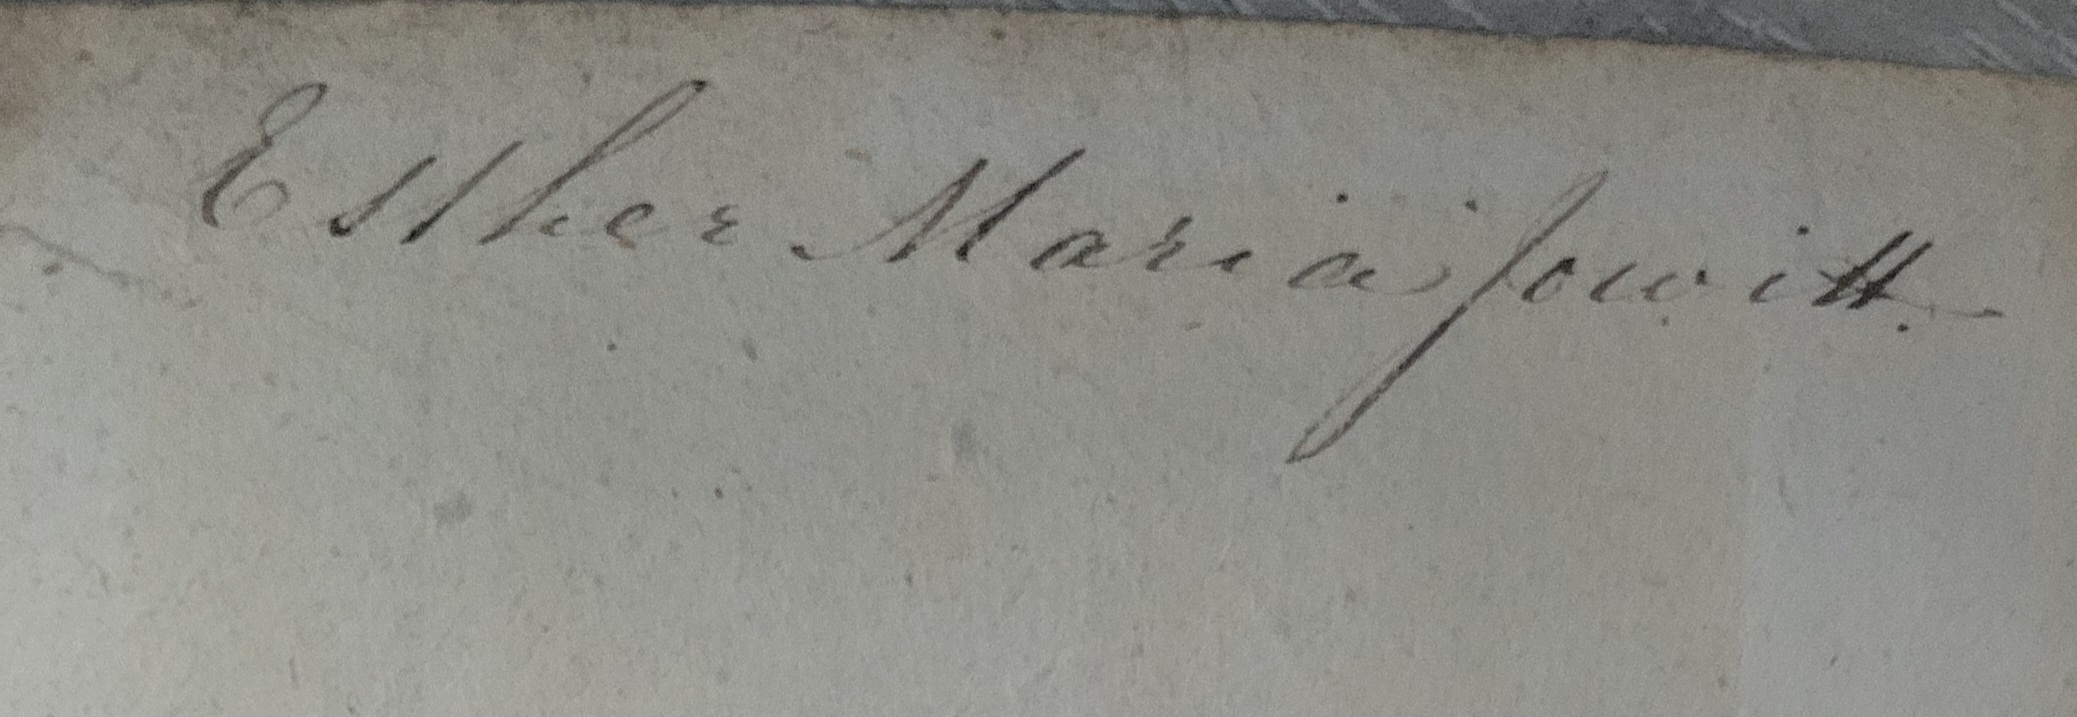 Esther Maria Jowitt.